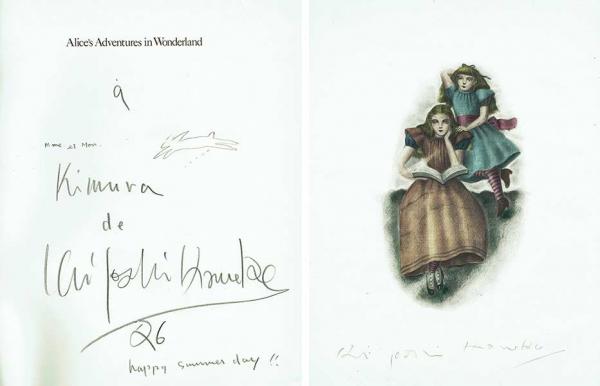 Alice's Adventures in Wonderland
à
Mme et Mon.
Kimura
de
Kuniyoshi Kaneko
86
happy summer day !!
Kuniyoshi Kaneko